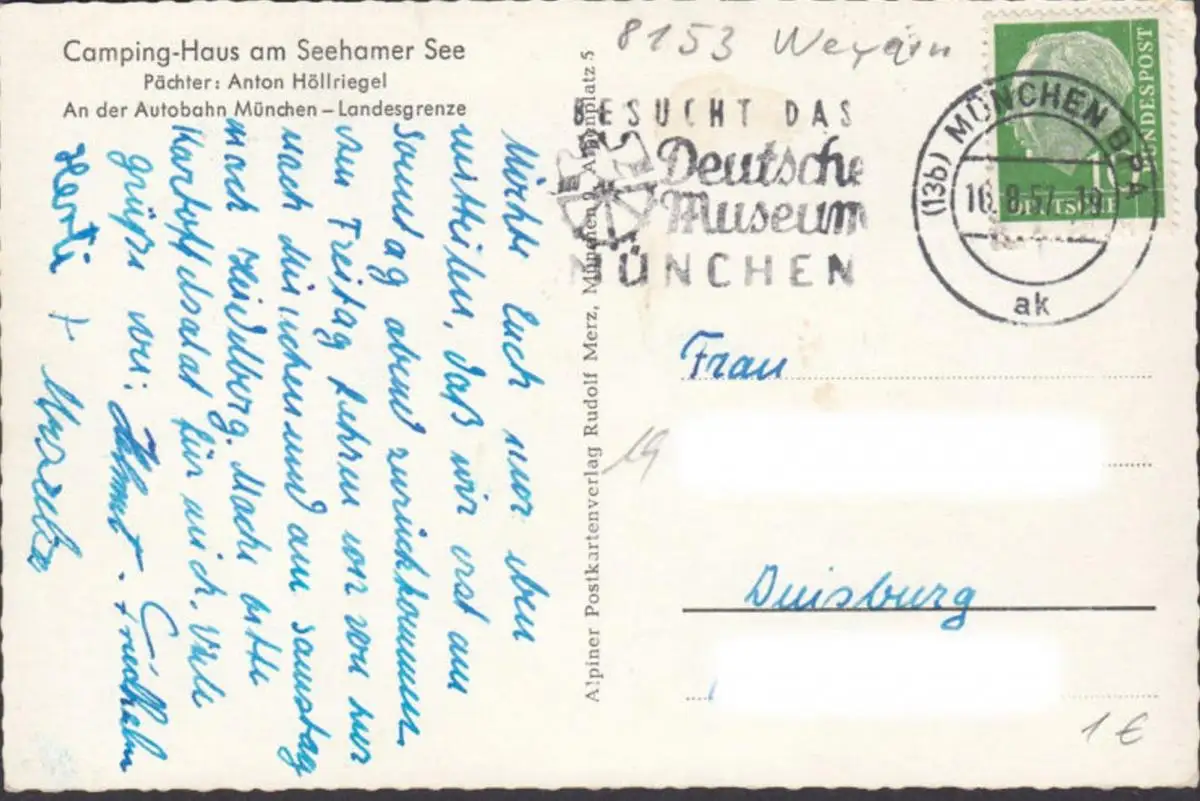 Camping-Haus am Seehamer See
Pächter: Anton Höllriegel
An der Autobahn München – Landesgrenze
8153 Weyarn
BESUCHT DAS
Deutsche
Museum
MÜNCHEN
(13b) MÜNCHEN BPA
16.8.57.-19
ak
DEUTSCHE
BUNDESPOST
Möchte Euch nur eben
mitteilen, daß wir erst am
Sonntag abend zurückkommen.
Am Freitag fahren wir von hier
nach München und am Samstag
nach Heidelberg. Mache bitte
Kartoffelsalat für mich. Viele
Grüße wir: Helmut. Friedhelm
Herta +
Alpiner Postkartenverlag Rudolf Merz, München 9, Alpenplatz 5
Frau
19
Duisburg
1 €